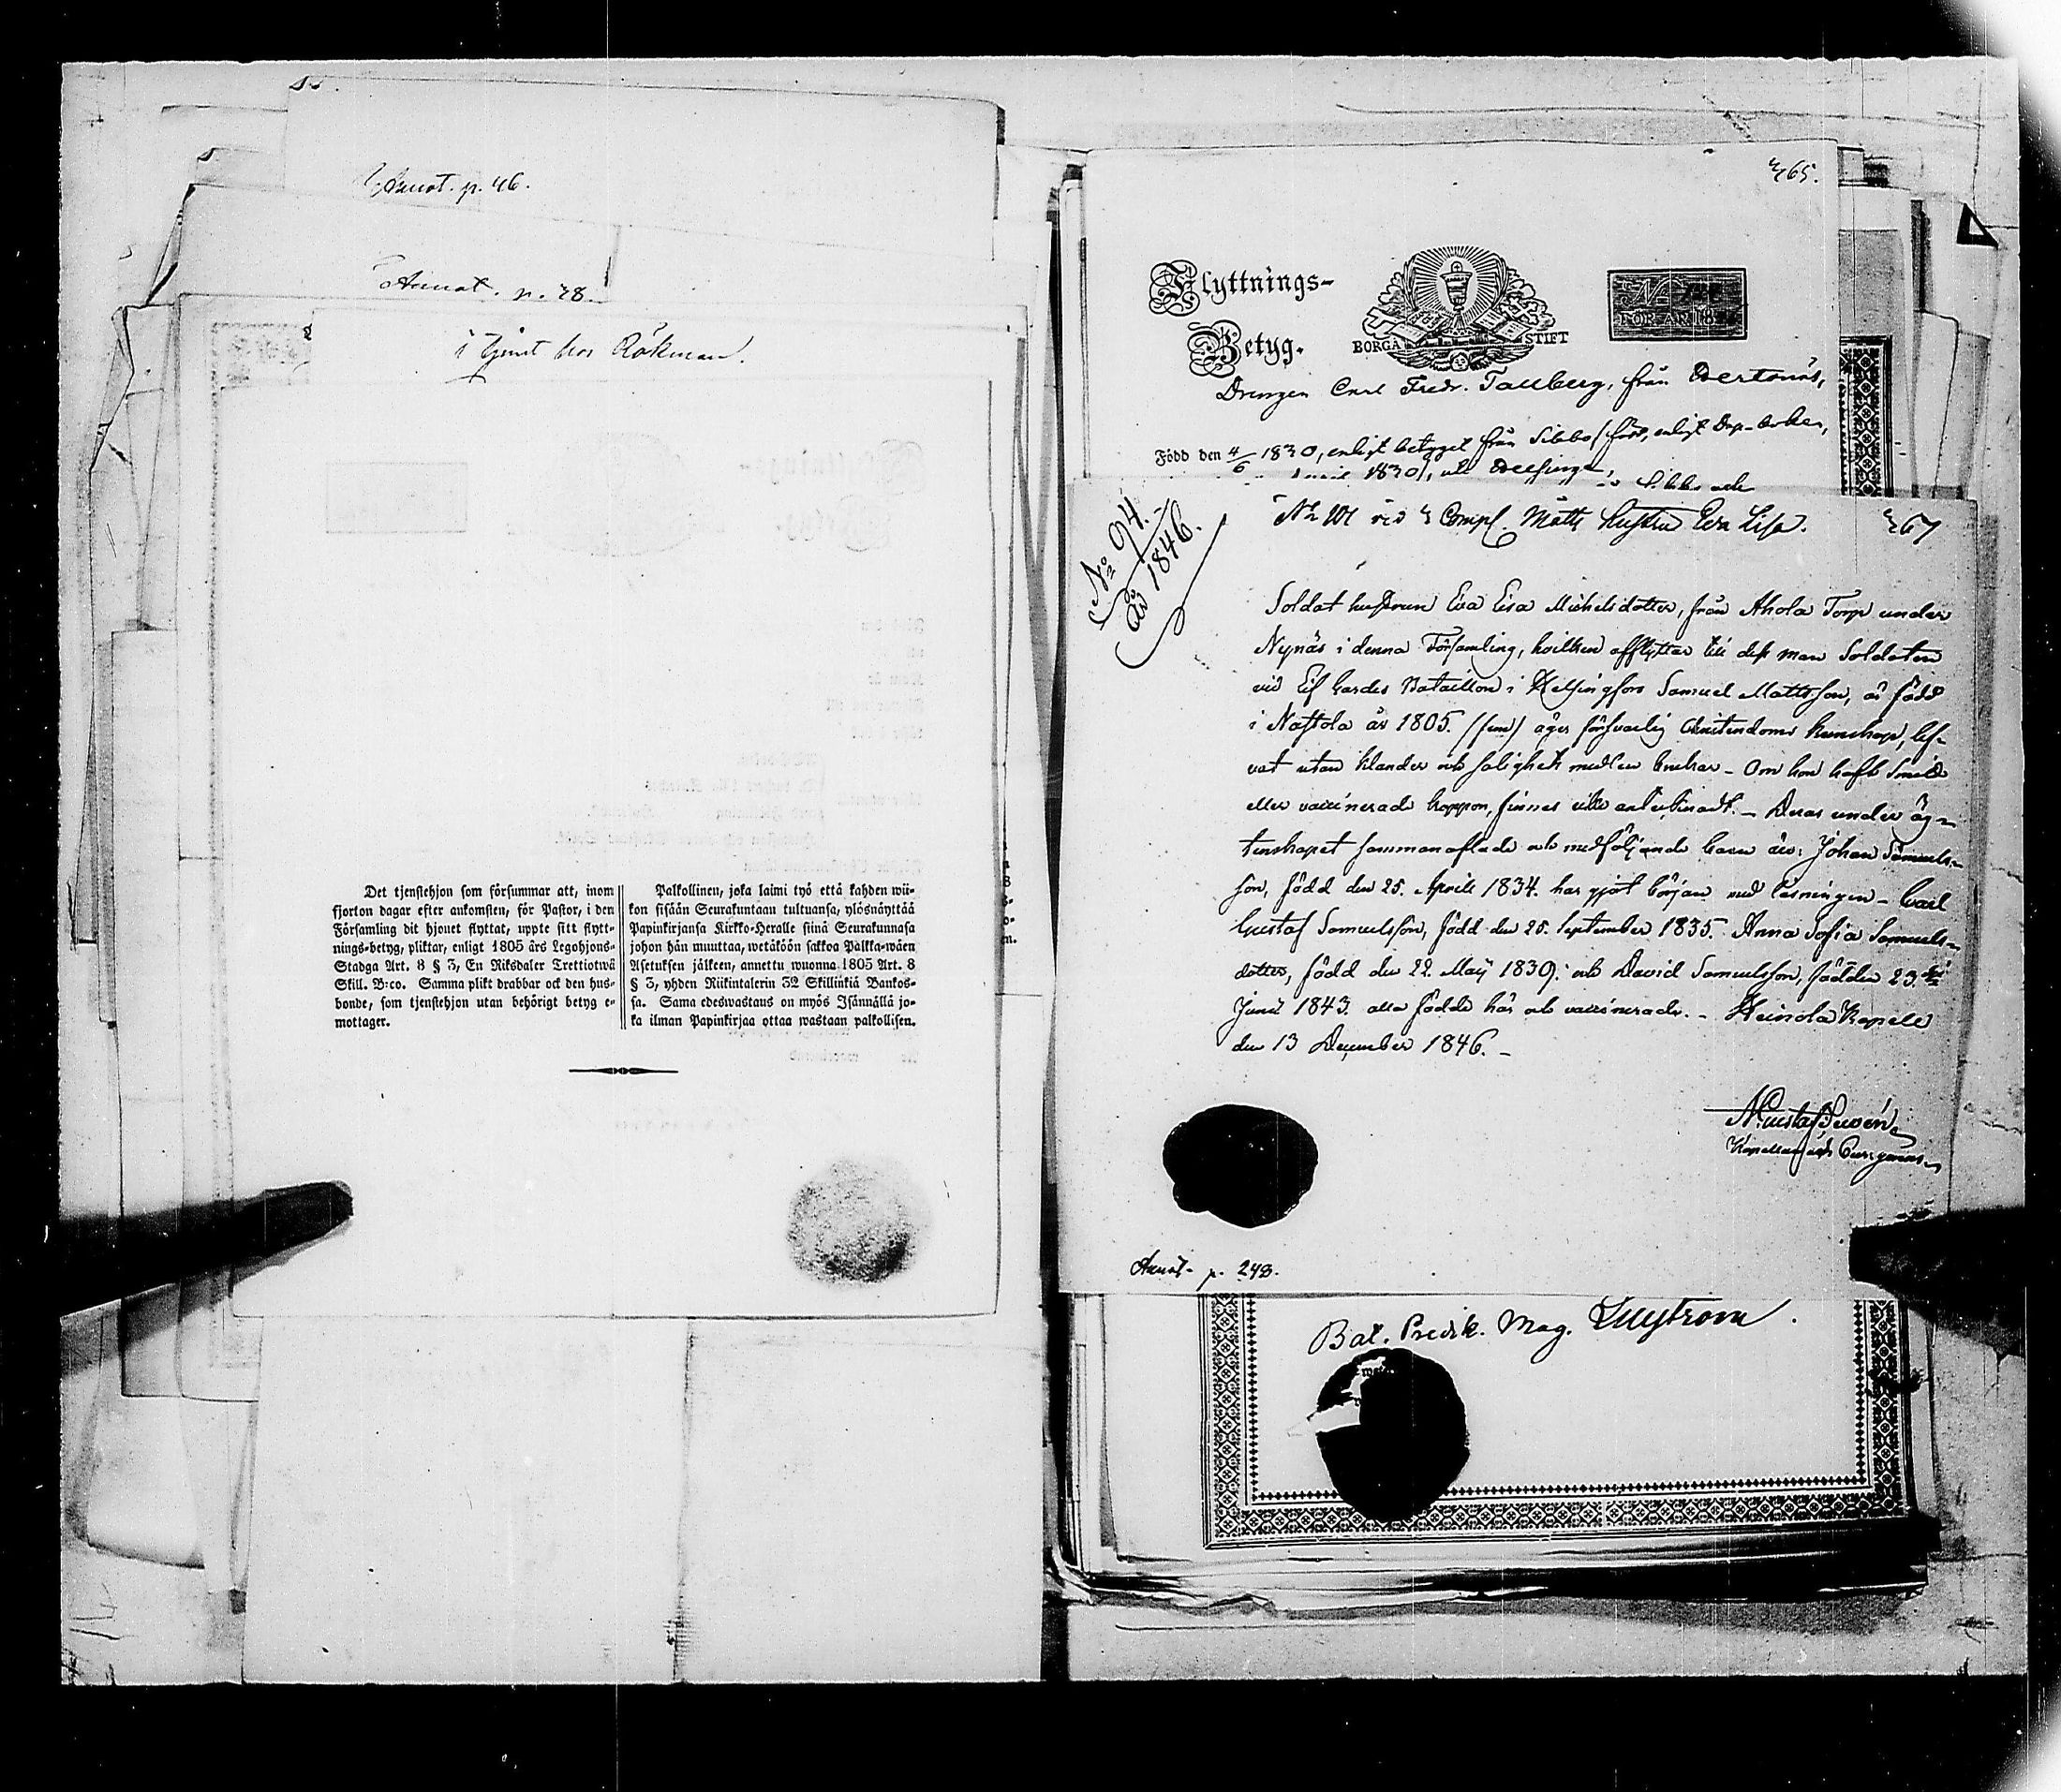 Annot. p. 46.
Annot. p. 48.
i tjenst hos Åkman.
Det tjenstehjon som försummar att, inom
fjorton dagar efter ankomsten, för Pastor, i den
Församling dit hjonet flyttat, uppte sitt flytt-
nings-betyg, pliktar, enligt 1805 års Legohjons-
Stadga Art. 8 § 3, En Riksdaler Trettiotwå
Skill. B:co. Samma plikt drabbar ock den hus-
bonde, som tjenstehjon utan behörigt betyg e-
mottager.
Palkollinen, joka laimi lyö että kahden wii-
kon sisään Seurakuntaan tultuansa, ylösnäyttää
Papinkirjansa Kirkko-Heralle siinä Seurakunnasa
johon hän muuttaa, wetäköön sakkoa Palkka-wäen
Asetuksen jälkeen, annettu wuonna 1805 Art. 8
§ 3, yhden Riikintalerin 32 Skillinkiä Bankos-
sa. Sama edeswastaus on myös Isännällä jo-
ka ilman Papinkirjaa ottaa wastaan palkollisen.
465.
Flyttnings-
Betyg.
BORGÅ STIFT
N
FÖR ÅR 18
Drengen Carl Fredr. Tallberg, från Hertonäs,
Född den 4/6 1830, enligt betyget från Sibbo (född, enligt Dop-boken,
1830), uti Helsinge,
Sibbo och
No 101 vid 4 Comp. Matts hustru Eva Lisa.
467
No 94.
år 1846.
Soldat hustrun Eva Lisa Michelsdotter, från Ahola Torp under
Nynäs i denna Församling, hvilken afflyttar till dess man Soldaten
vid Lif Gardes Bataillon i Helsingfors Samuel Mattsson, är född
i Nastola år 1805. (fem) äger försvarlig Christendoms kunskap, lef-
vat utan klander och salighets medlen brukar. - Om hon haft Smitt
eller vaccinerade koppor, finnes icke antecknadt. - Deras under äg-
tenskapet sammanaflade och medföljande barn äro: Johan Samuels-
son, född den 25. Aprill 1834. har gjort början med läsningen - Carl
Gustaf Samuelsson, född den 25. September 1835. Anna Sofia Samuels-
dotter, född den 22. Maij 1839. och David Samuelsson, född den 23.
Junii 1843. alla födde här och vaccinerade. - Heinola Kapell
den 13 December 1846. -
Annot. p. 243.
Bat. Predik. Mag.